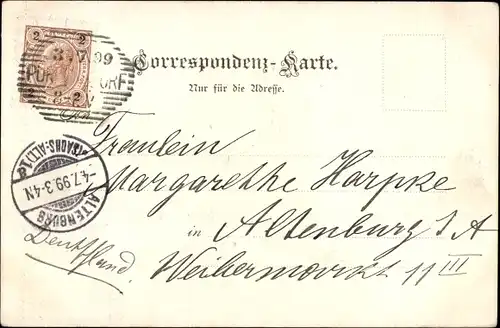 2 2
3 7 99
Correspondenz-Karte.
Nur für die Adresse.
(SACHS.-ALT.) 1 a
4.7.99.3-4N.
ALTENBURG
Fräulein
Margarethe Harpke
in Altenburg S/A
Weibermarkt 11 III
Deutschland.